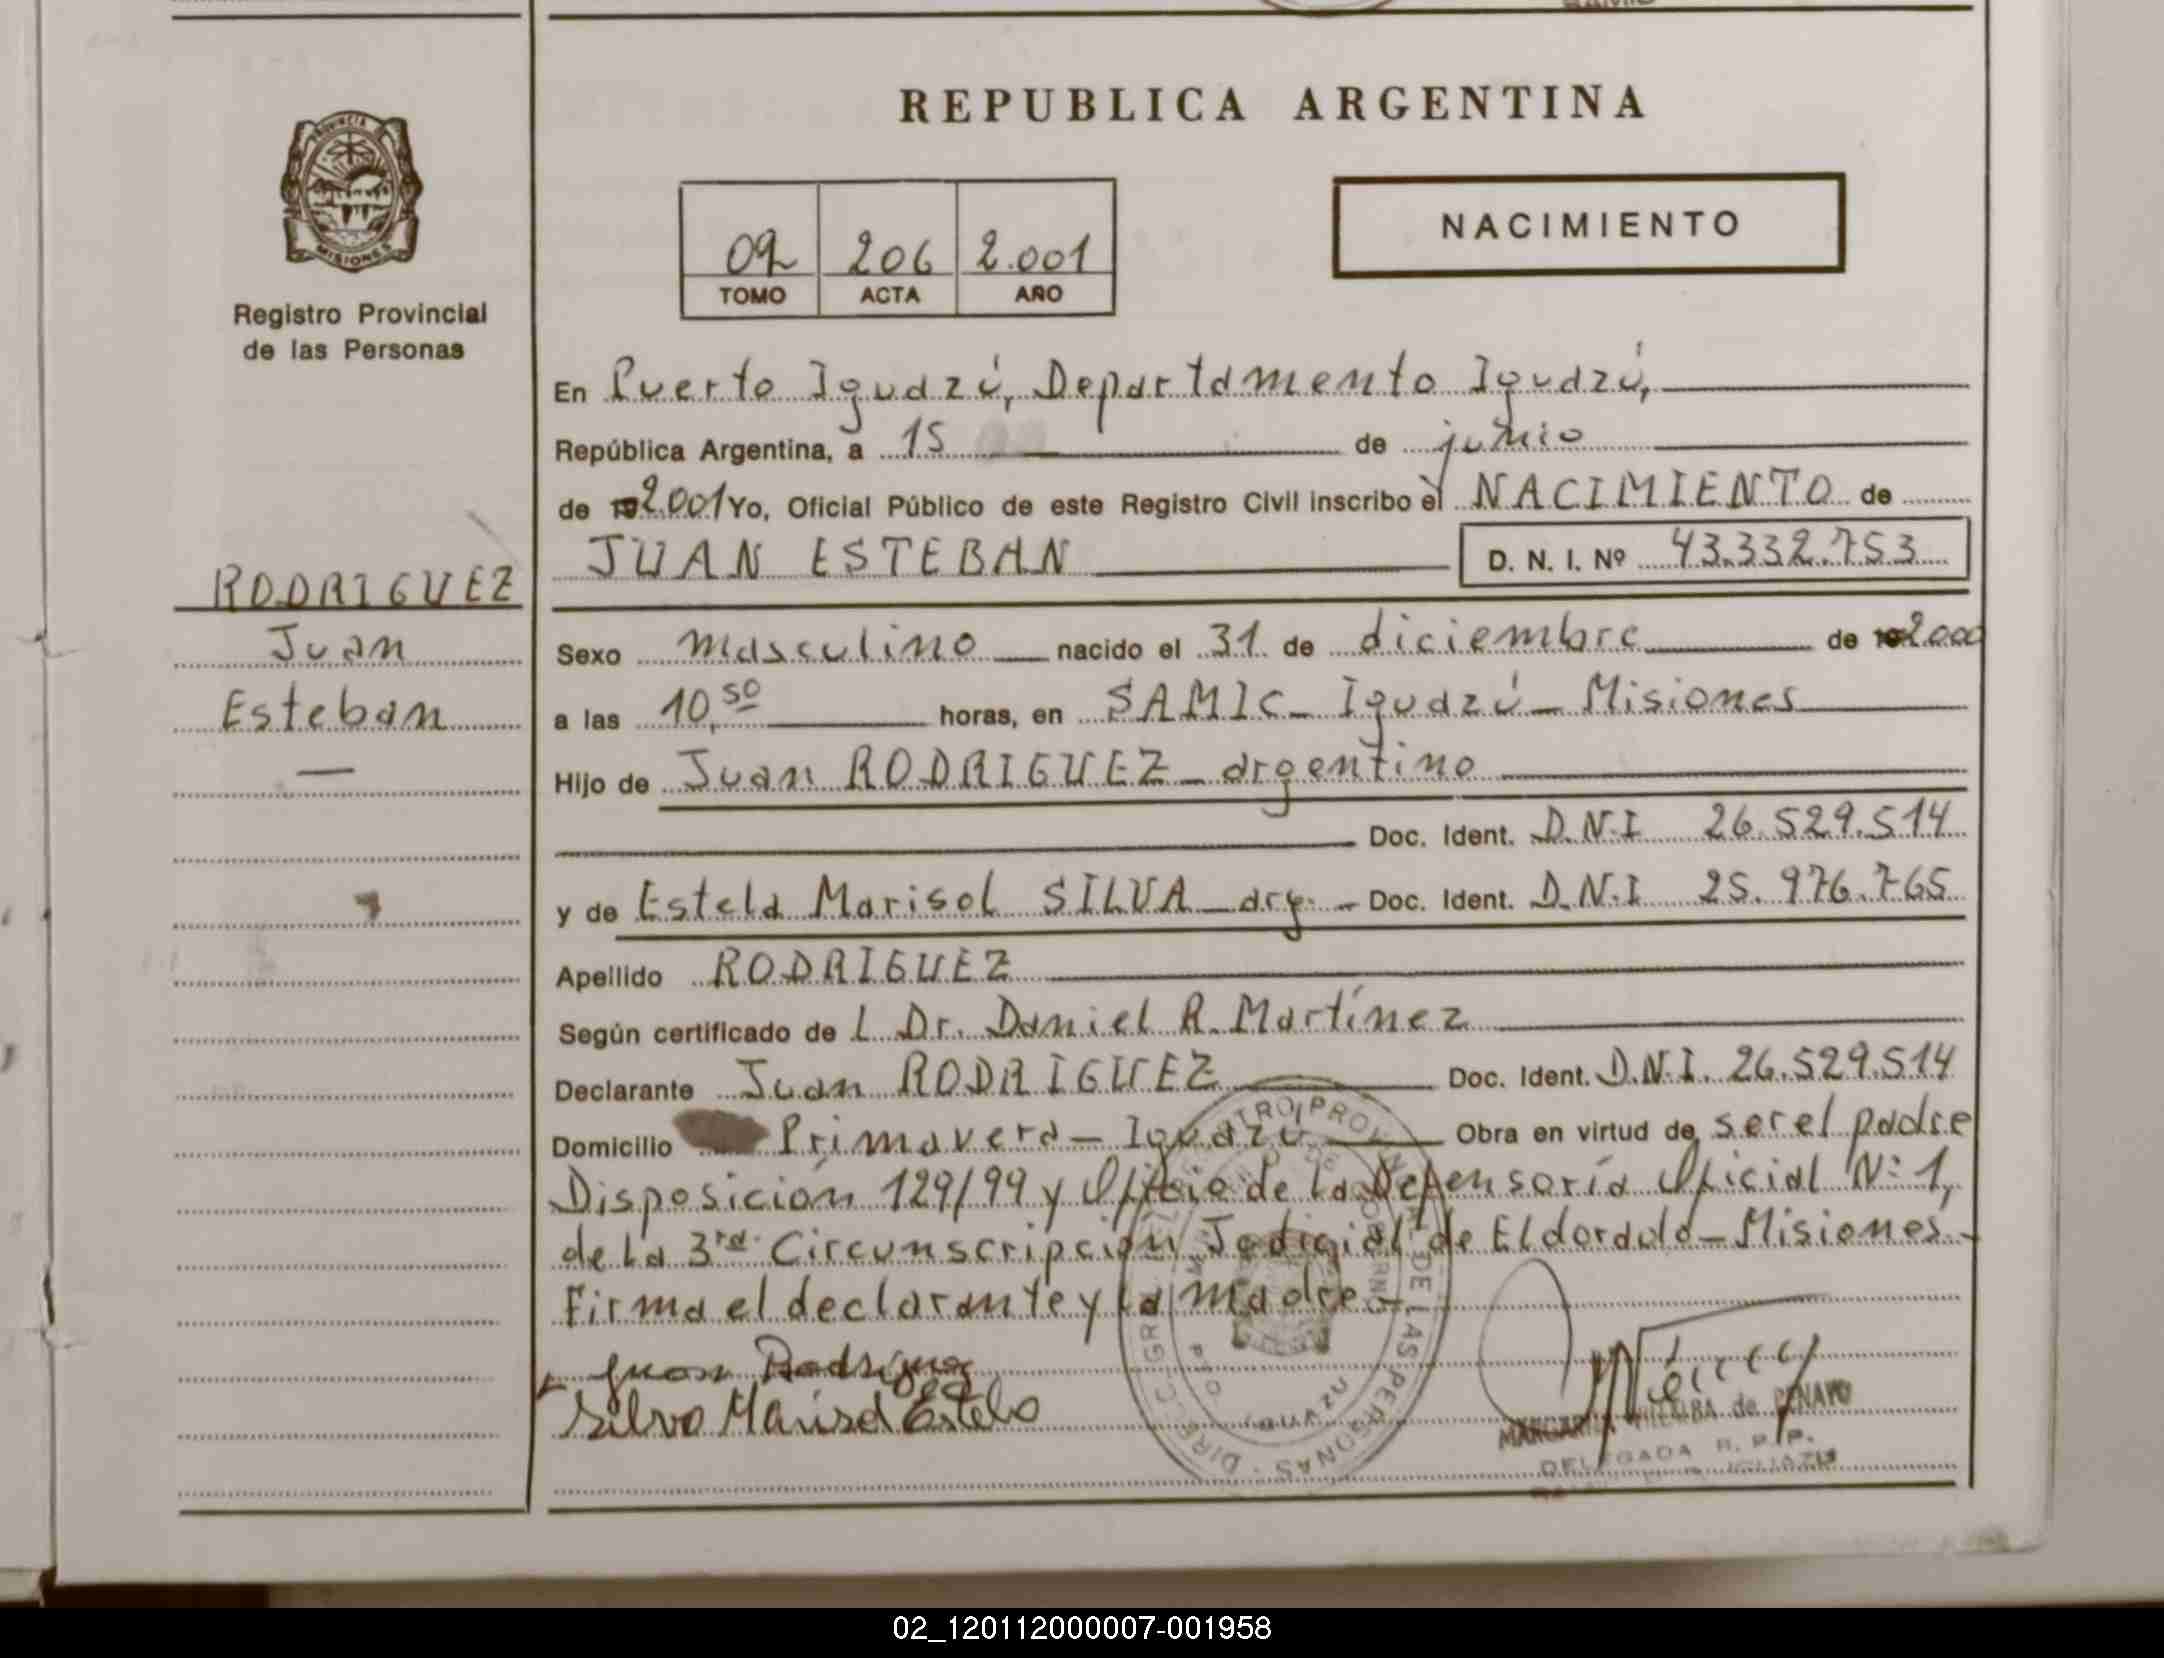 REPUBLICA ARGENTINA
PROVINCIA DE
MISIONES
Registro Provincial
de las Personas
02 206 2.001
TOMO ACTA AÑO
NACIMIENTO
En Puerto Iguazú, Departamento Iguazú,
República Argentina, a 15 de junio
de 2.001 Yo, Oficial Público de este Registro Civil inscribo el NACIMIENTO de
JUAN ESTEBAN D. N. I. Nº 43.332.753
RODRIGUEZ
Juan
Esteban
Sexo masculino nacido el 31 de diciembre de 2000
a las 10,50 horas, en SAMIC - Iguazú - Misiones
Hijo de Juan RODRIGUEZ - argentino
Doc. Ident. D.N.I 26.529.514
y de Estela Marisol SILVA - arg. - Doc. Ident. D.N.I 25.976.765
Apellido RODRIGUEZ
Según certificado de l Dr. Daniel R. Martínez
Declarante Juan RODRIGUEZ Doc. Ident. D.N.I. 26.529.514
Domicilio Primavera - Iguazú Obra en virtud de ser el padre
Disposición 129/99 y Oficio de la Defensoría Oficial Nº 1,
de la 3ra. Circunscripción Judicial de Eldorado - Misiones -
Firma el declarante y la madre. -
Juan Rodriguez
Silva Marisol Estela
DIREC. GRAL. DEL REGISTRO PROVINCIAL DE LAS PERSONAS
MINISTERIO DE GOBIERNO
IGUAZU
MARGARITA VILLALBA de PENAYO
DELEGADA R. P. P.
IGUAZU
02_120112000007-001958